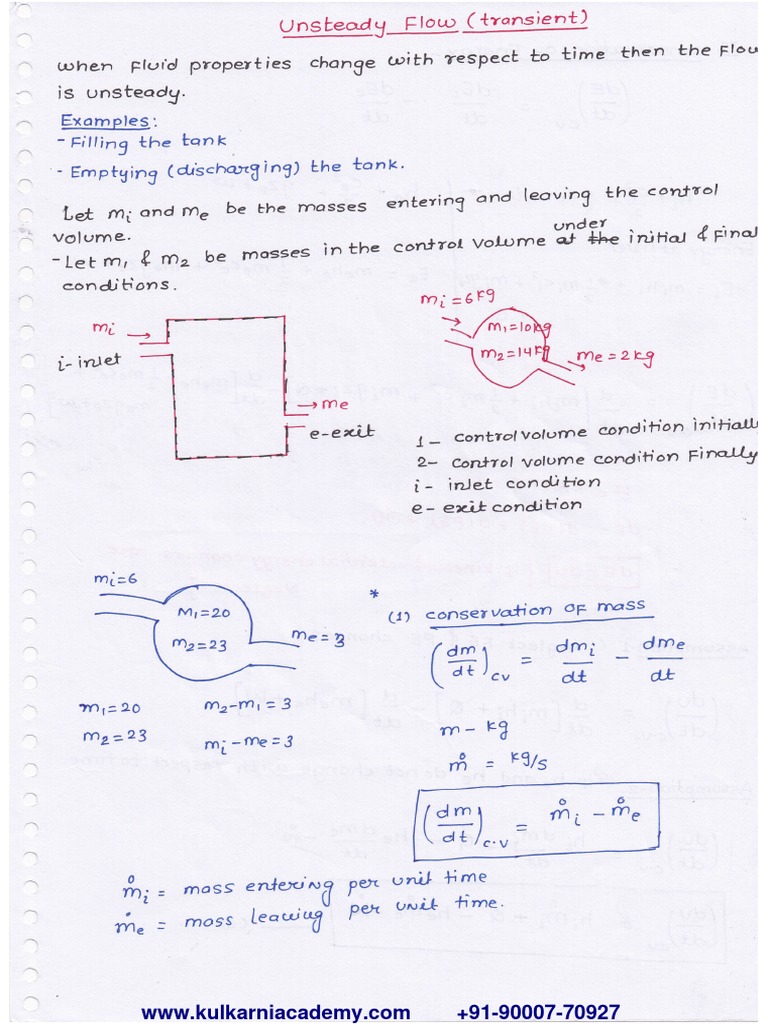 Unsteady Flow (transient)
when Fluid properties change with respect to time then the Flow
is unsteady.
Examples:
- Filling the tank
- Emptying (discharging) the tank.
Let mi and me be the masses entering and leaving the control
volume.
under
- Let m1 & m2 be masses in the control volume at the initial & Final
conditions.
mi
i- inlet
me
e-exit
mi = 6 kg
m1=10kg
m2=14kg
me = 2 kg
1 - control volume condition initially
2- control volume condition Finally
i - inlet condition
e - exit condition
mi=6
m1=20
m2=23
me = 3
m1=20
m2=23
m2-m1 = 3
mi-me=3
*
(1) conservation of mass
(dm/dt)cv = dmi/dt - dme/dt
m - kg
ṁ = kg/s
(dm/dt)c.v = ṁi - ṁe
ṁi = mass entering per unit time
ṁe = mass leaving per unit time.
www.kulkarniacademy.com +91-90007-70927